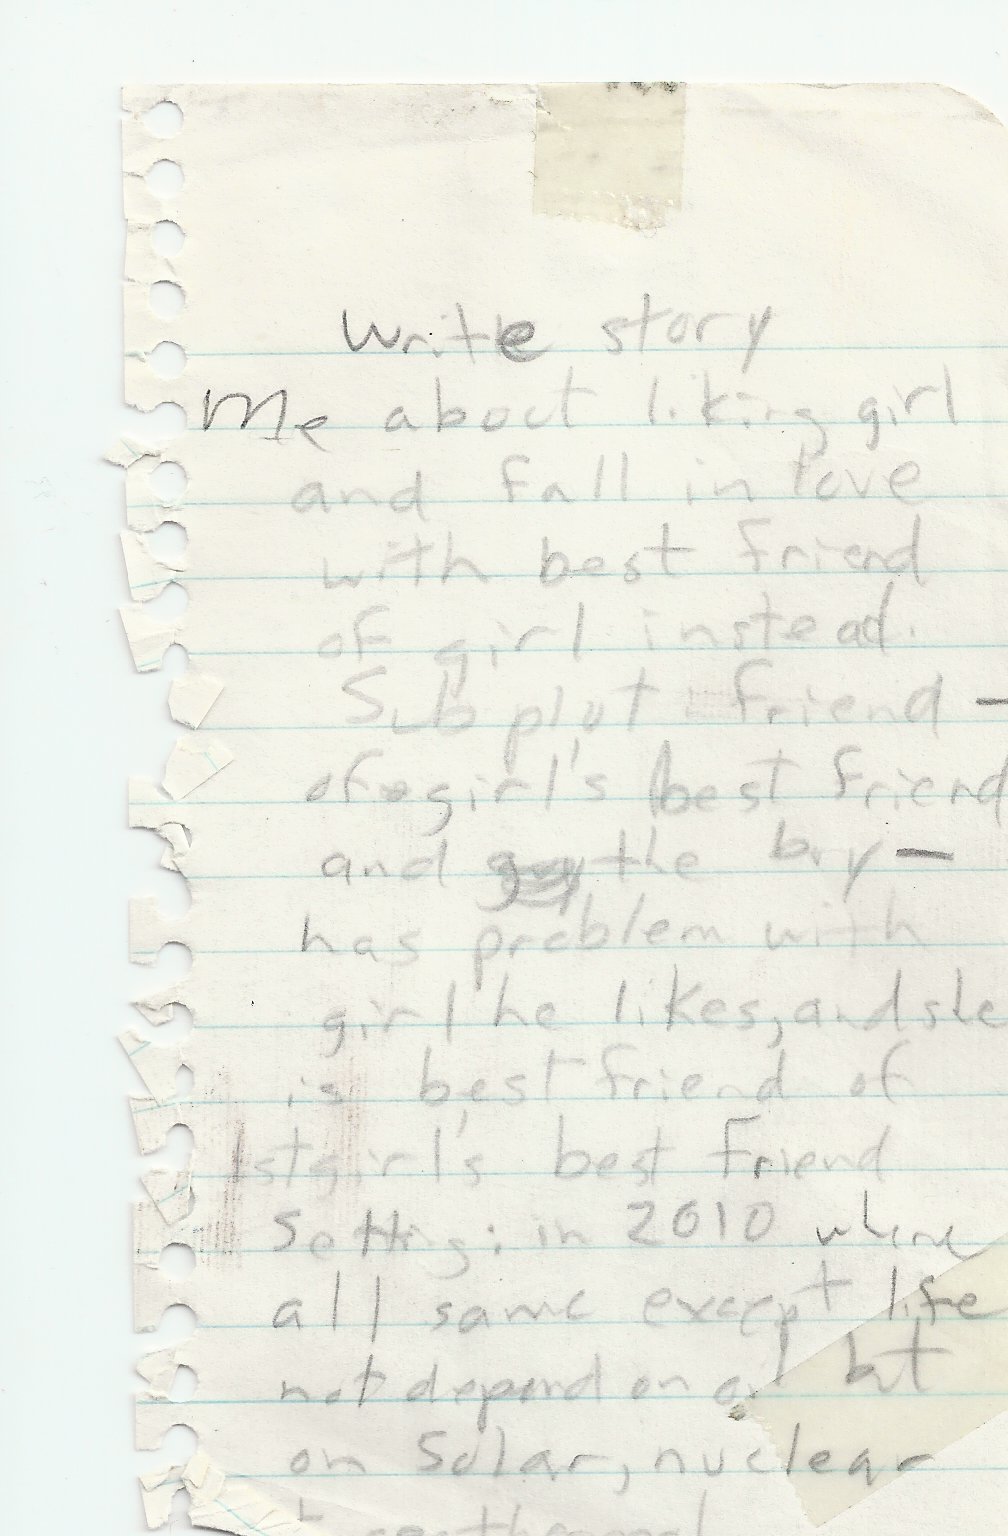 Write story
Me about liking girl
and fall in love
with best friend
of girl instead.
Subplot friend -
of girl's best friend
and the boy -
has problem with
girl he likes, and she
is best friend of
1st girl's best friend
Setting: in 2010 where
all same except life
not depend on oil but
on Solar, nuclear